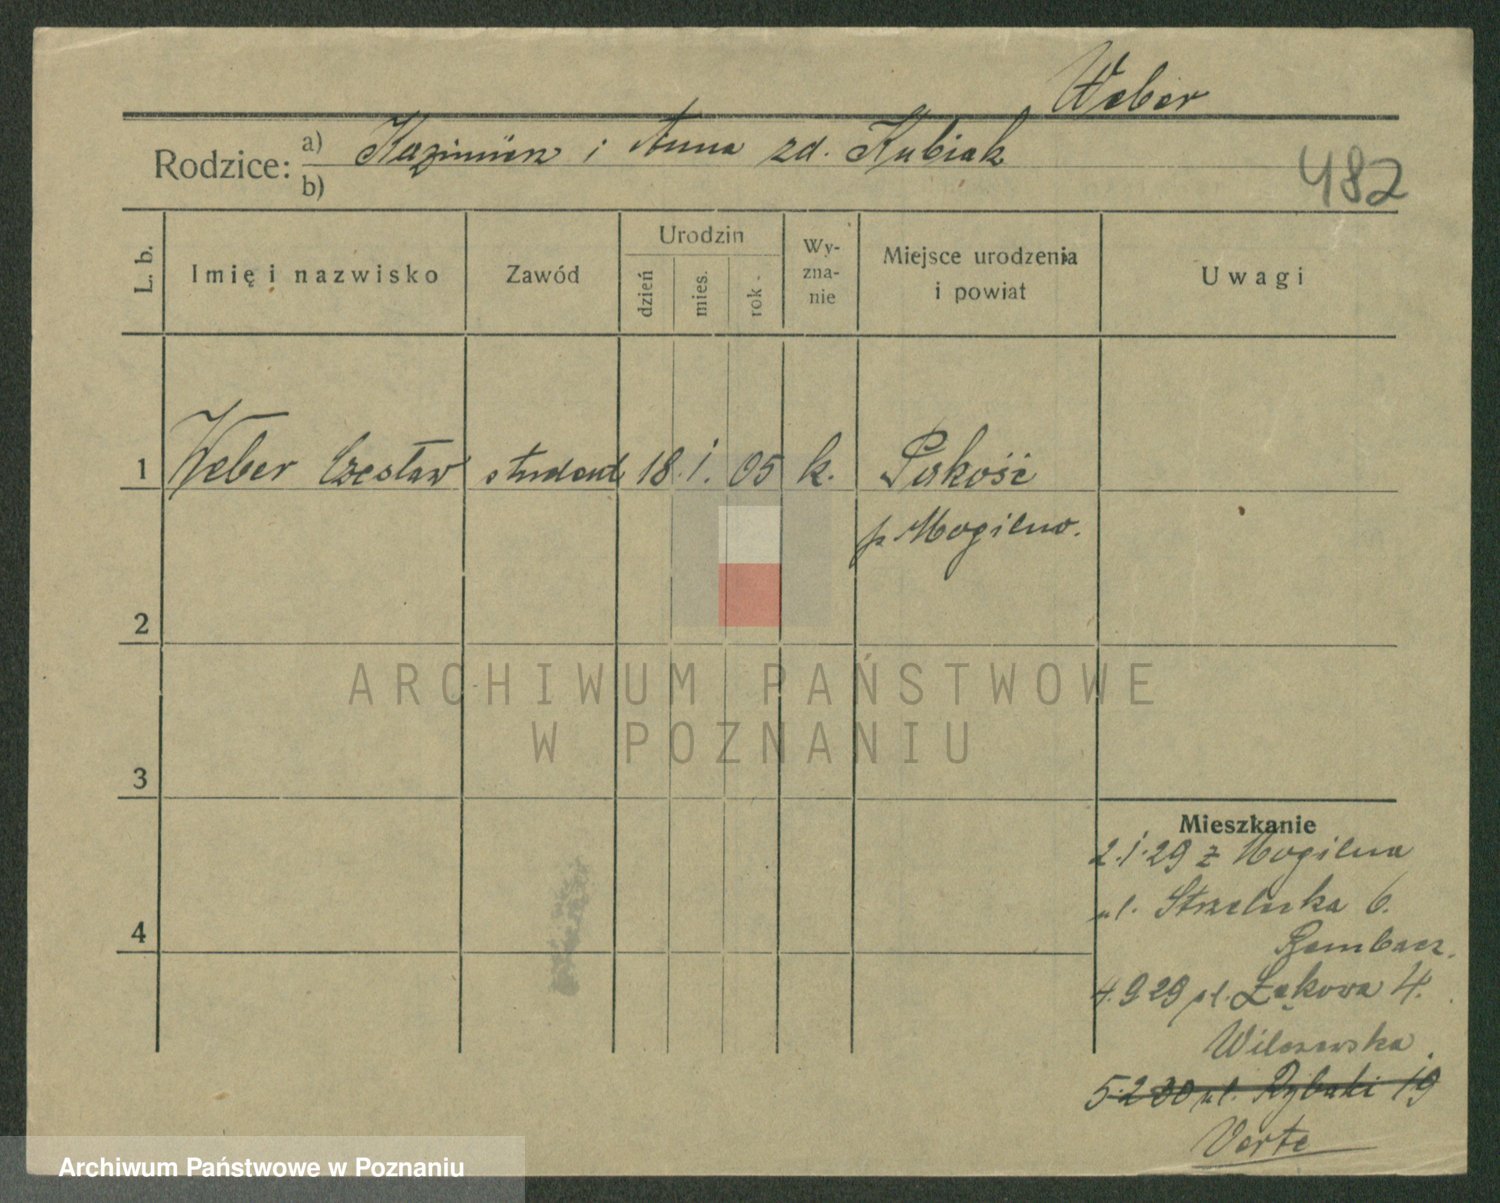 Weber
Rodzice: a) Kazimierz i Anna zd. Kubiak
b)
482
L. b. Imię i nazwisko Zawód Urodzin dzień mies. rok Wy-zna-nie Miejsce urodzenia i powiat Uwagi
1 Weber Czesław student 18. 1. 05 k. Pakość
p Mogilno.
2
3
4
Mieszkanie
2.1.29 z Mogilna
ul. Strzelecka 6.
4.9 29 ul. Łąkowa 4.
5.2 30 ul. Rybaki 19
Verte
ARCHIWUM PAŃSTWOWE
W POZNANIU
Archiwum Państwowe w Poznaniu